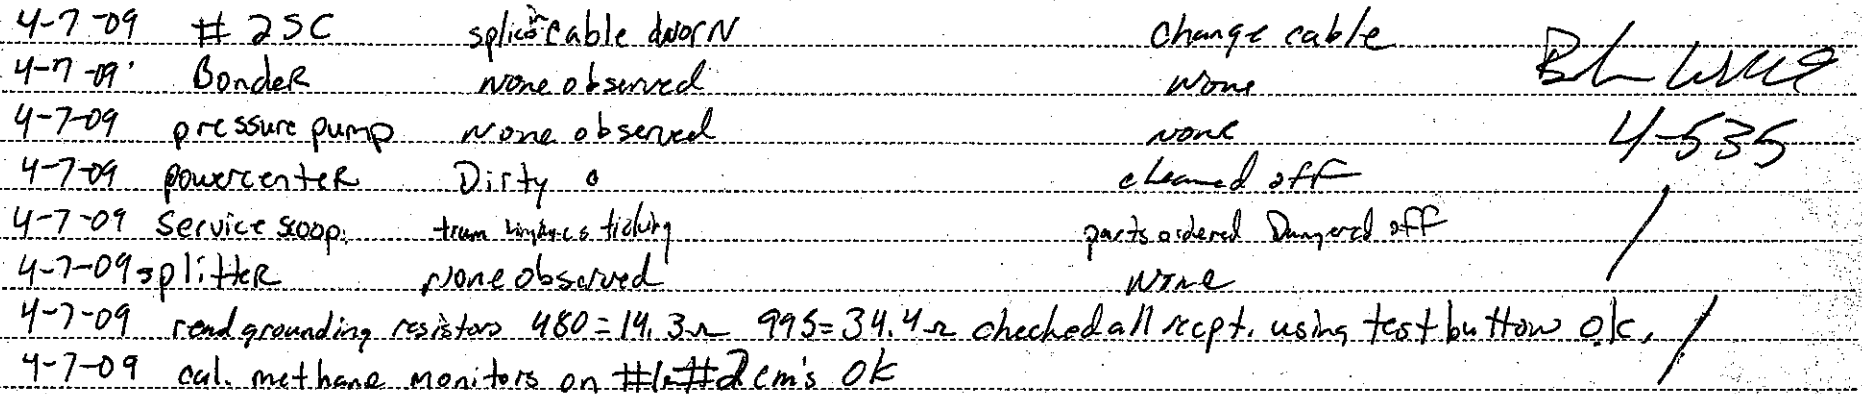 4-7-09 # 2SC splice cable worn change cable
4-7-09 BondeR none observed none
4-7-09 pressure pump none observed none 4-535
4-7-09 powercenteR Dirty cleaned off
4-7-09 Service scoop. tram sticking parts ordered Dangered off
4-7-09 splitteR none observed none
4-7-09 read grounding resistors 480=14.3Ω 995=34.4Ω checked all recpt. using test button o.k.
4-7-09 cal. methane monitors on #1 #2 cm's ok